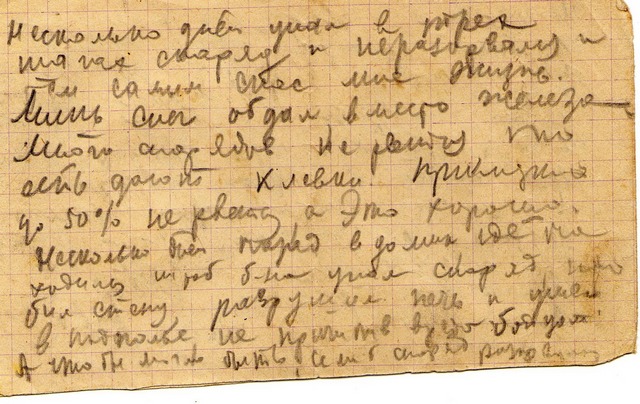 Несколько дней упал в трех
шагах снаряд и неразорвался и
тем самым спас мне жизнь.
Лишь снег обдал вместо железа
Много снарядов не рвется что
есть дают клевки приблизно
до 50% не рвется а Это хорошо.
Несколько дней назад в домик где на
ходились штаб б-на упал снаряд про
бил стену разрушил печь и ушел
в подполье не причинив вреда бойцам
А что бы могло быть если б снаряд разорвался